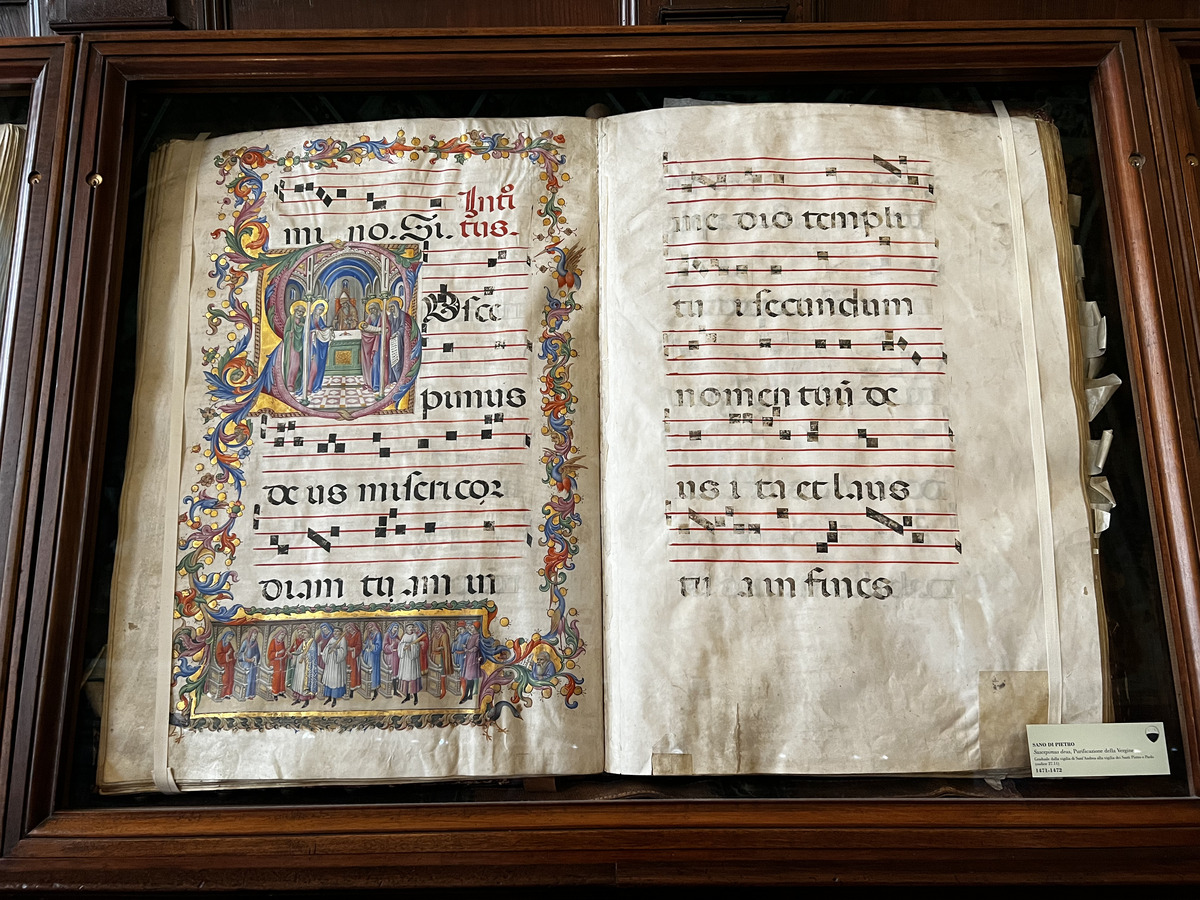 Intro
mi no. Si. tus.
Vsce
pimus
de us misericor
diam tu am in
me dio templi
tu i secundum
nomen tuū de
us i ta et laus
tu a in fines
SANO DI PIETRO
Suscepimus deus, Purificazione della Vergine
Graduale dalla vigilia di Sant'Andrea alla vigilia dei Santi Pietro e Paolo
(codice 27.11)
1471-1472